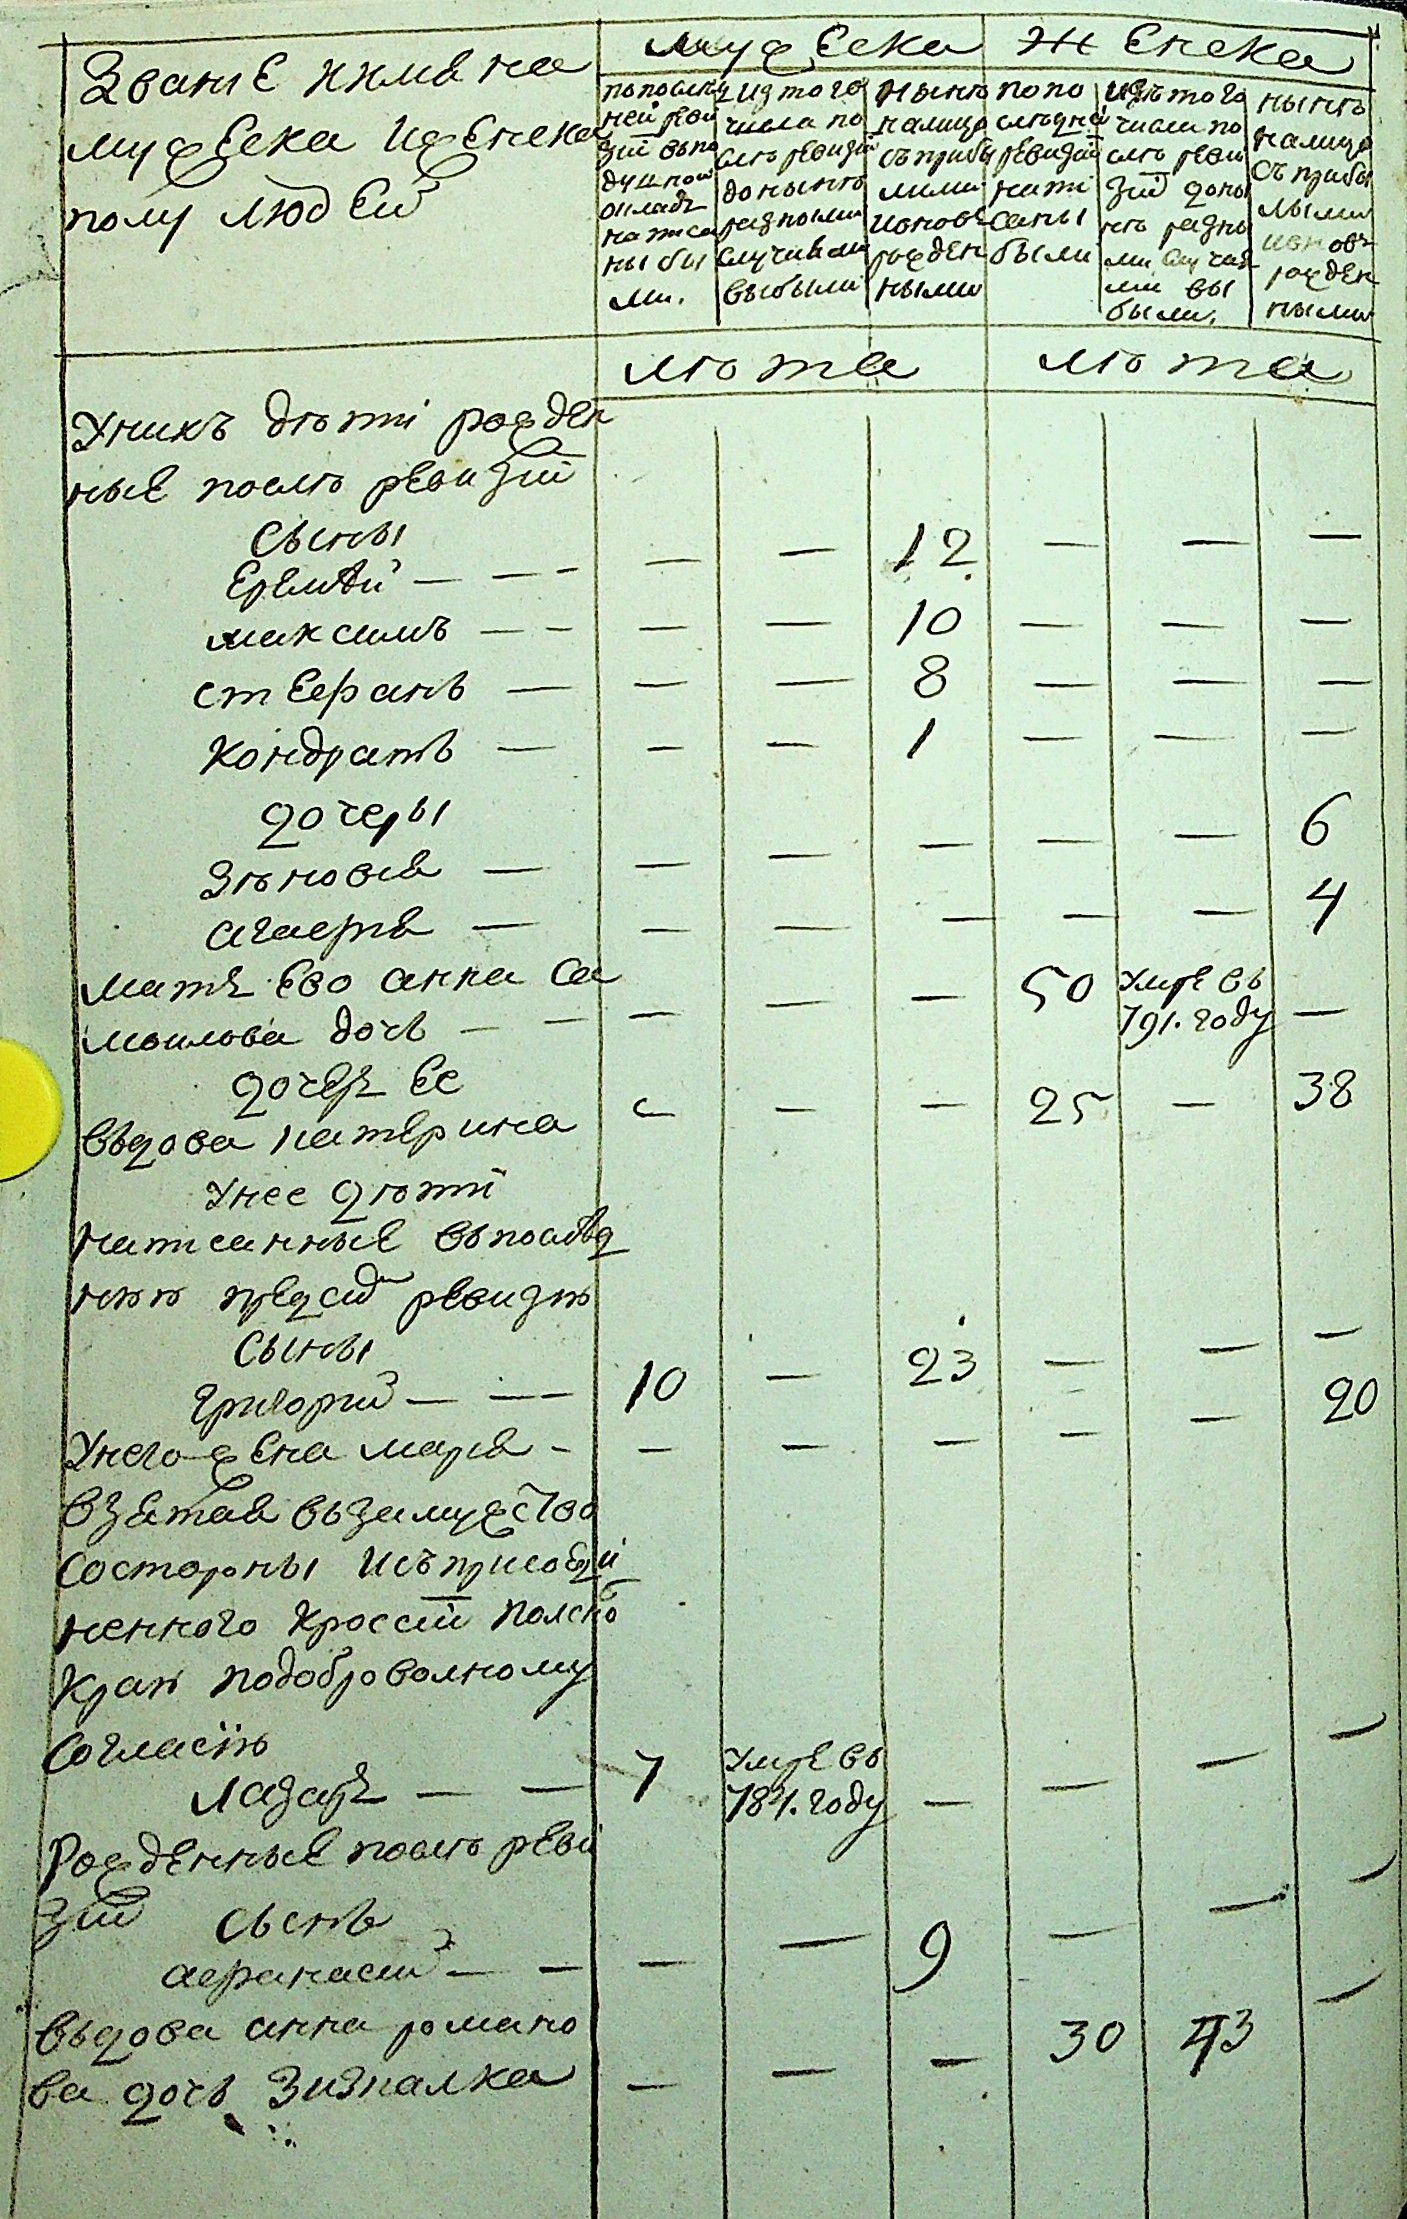 Званіе иимяна
мужеска иженска
полу людей
мужеска
женска
попослѣд
ней реви
зіи въпо
душном
окладѣ
написа
ны бы
ли.
изтого
числа по
слѣ ревизіи
донынѣ
разными
случиями
выбыли
нынѣ
налицо
съприбы
лыми
иновъ
рожден
ными
попо
слюдней
ревизіи
напи
саны
были
изътого
числа по
слѣ реви
зіи доны
нѣ разны
ми случая
ми вы
были.
нынѣ
налицо
съприбы
лыми
иновъ
рожден
ными
лѣта
лѣта
Унихъ дѣти рожден
ные послѣ ревизіи
Сыны
Еремѣй — — — — — 12 — — —
максимъ — — — — 10 — — —
стефанъ — — — 8 — — —
Кондратъ — — — 1 — — —
дочеры
Зѣновия — — — — — — 6
агафия — — — — — — 4
мать Ево анна са
моилова дочь — — — — — 50 Умре въ 791. году —
дочерь Ее
въдова катерина — — — 25 — 38
Унее дѣти
написанные въпослѣд
нѣй предсим ревизѣ
Сыны
григорий — — — 10 — 23 — — —
Унего жена маря — — — — — — 20
взятая възамужство
состороны исъприсоеди
ненного Кросcіи полско
Краѣ подоброволному
согласію
лазарь — — 7 Умре въ 784. году — — — —
Рожденные послѣ реви
зіи сынъ
афанасий — — — — 9 — — —
въдова анна романо
ва дочь Зизналка — — — 30 43 —